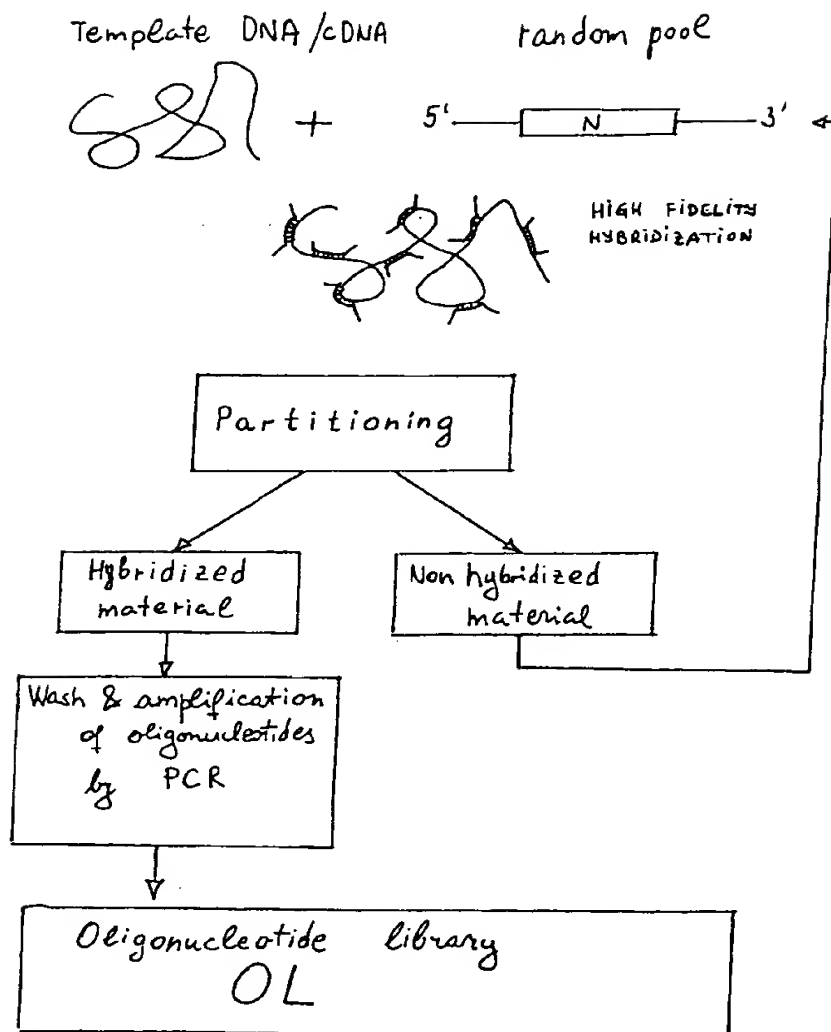 Template DNA/cDNA random pool
+ 5' N 3'
HIGH FIDELITY
HYBRIDIZATION
Partitioning
Hybridized
material
Non hybridized
material
Wash & amplification
of oligonucleotides
by PCR
Oligonucleotide library
OL